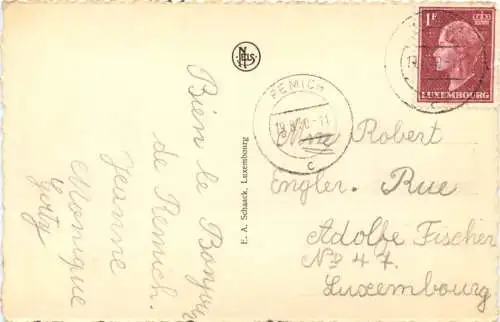 Bien le Bonjour
de Remich.
Jeanne
Monique
NELS
E. A. Schaack, Luxembourg
REMICH
19.8.50-11
C
1F
LUXEMBOURG
Mme Robert
Engler. Rue
Adolfe Fischer
No 47.
Luxembourg